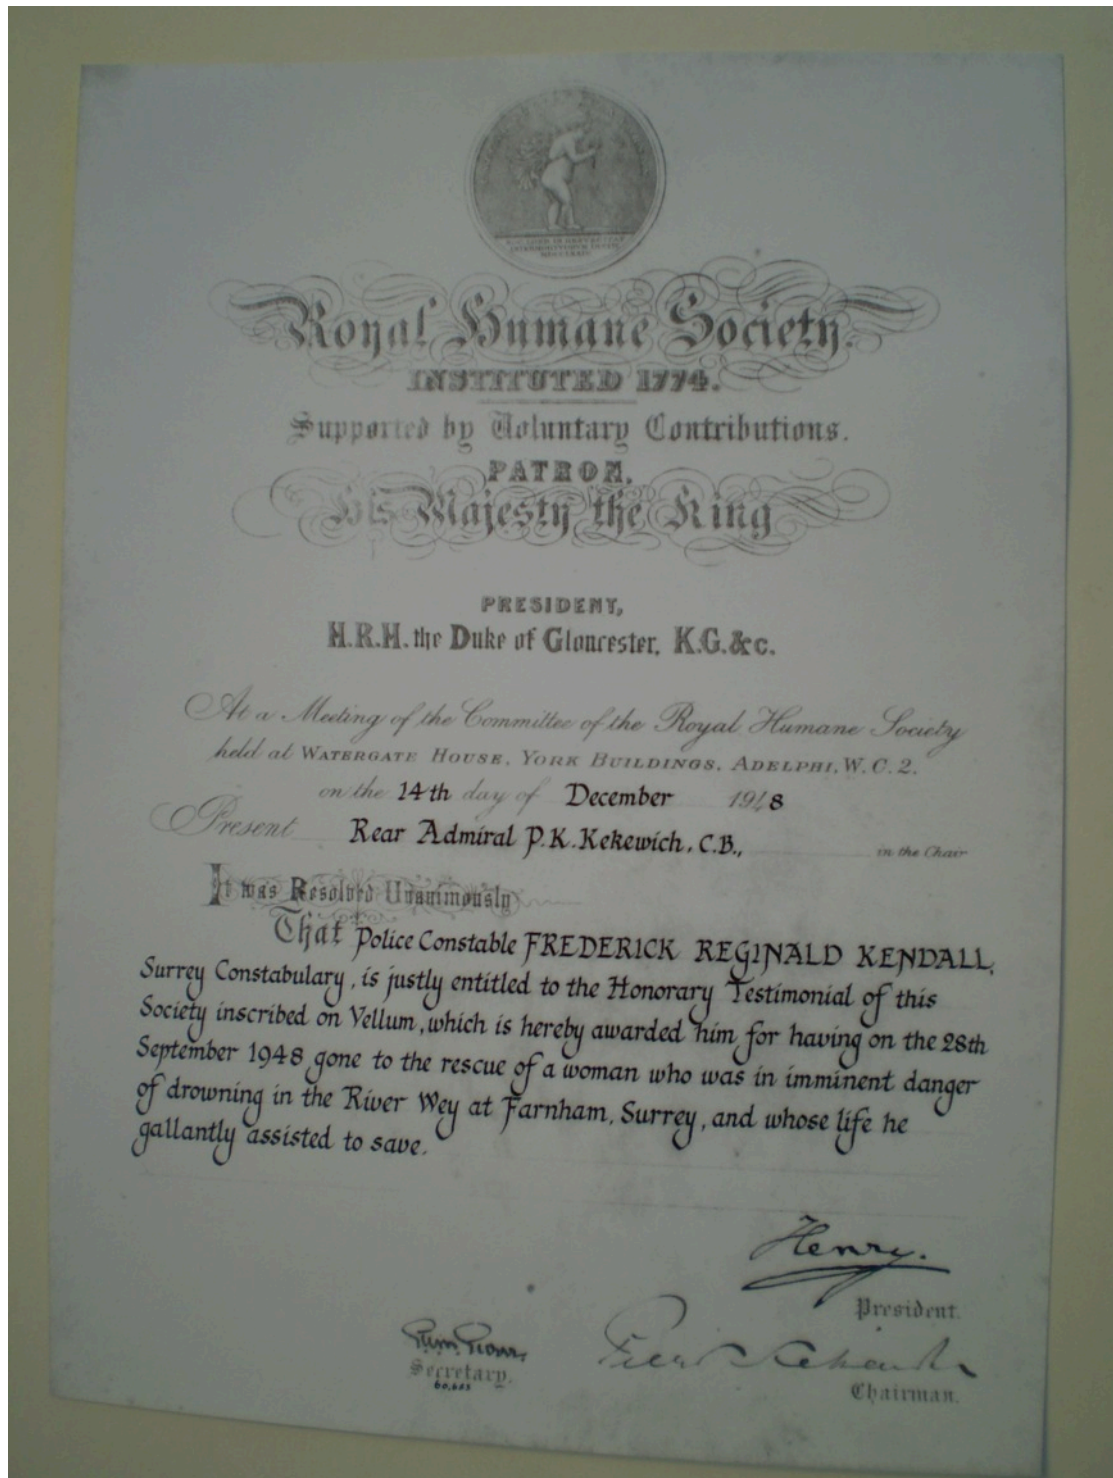 Royal Humane Society.
INSTITUTED 1774.
Supported by Voluntary Contributions.
PATRON,
His Majesty the King
PRESIDENT,
H.R.H. the Duke of Gloucester, K.G. &c.
At a Meeting of the Committee of the Royal Humane Society
held at WATERGATE HOUSE, YORK BUILDINGS, ADELPHI, W.C.2.
on the 14th day of December 1948
Present Rear Admiral P.K. Kekewich, C.B., in the Chair
It was Resolved Unanimously
That Police Constable FREDERICK REGINALD KENDALL,
Surrey Constabulary, is justly entitled to the Honorary Testimonial of this
Society inscribed on Vellum, which is hereby awarded him for having on the 28th
September 1948 gone to the rescue of a woman who was in imminent danger
of drowning in the River Wey at Farnham, Surrey, and whose life he
gallantly assisted to save.
Henry.
President.
Secretary.
Chairman.